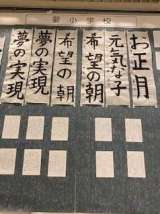 小学校
お正月
元気な子
希望の朝
希望の朝
夢の実現
夢の実現